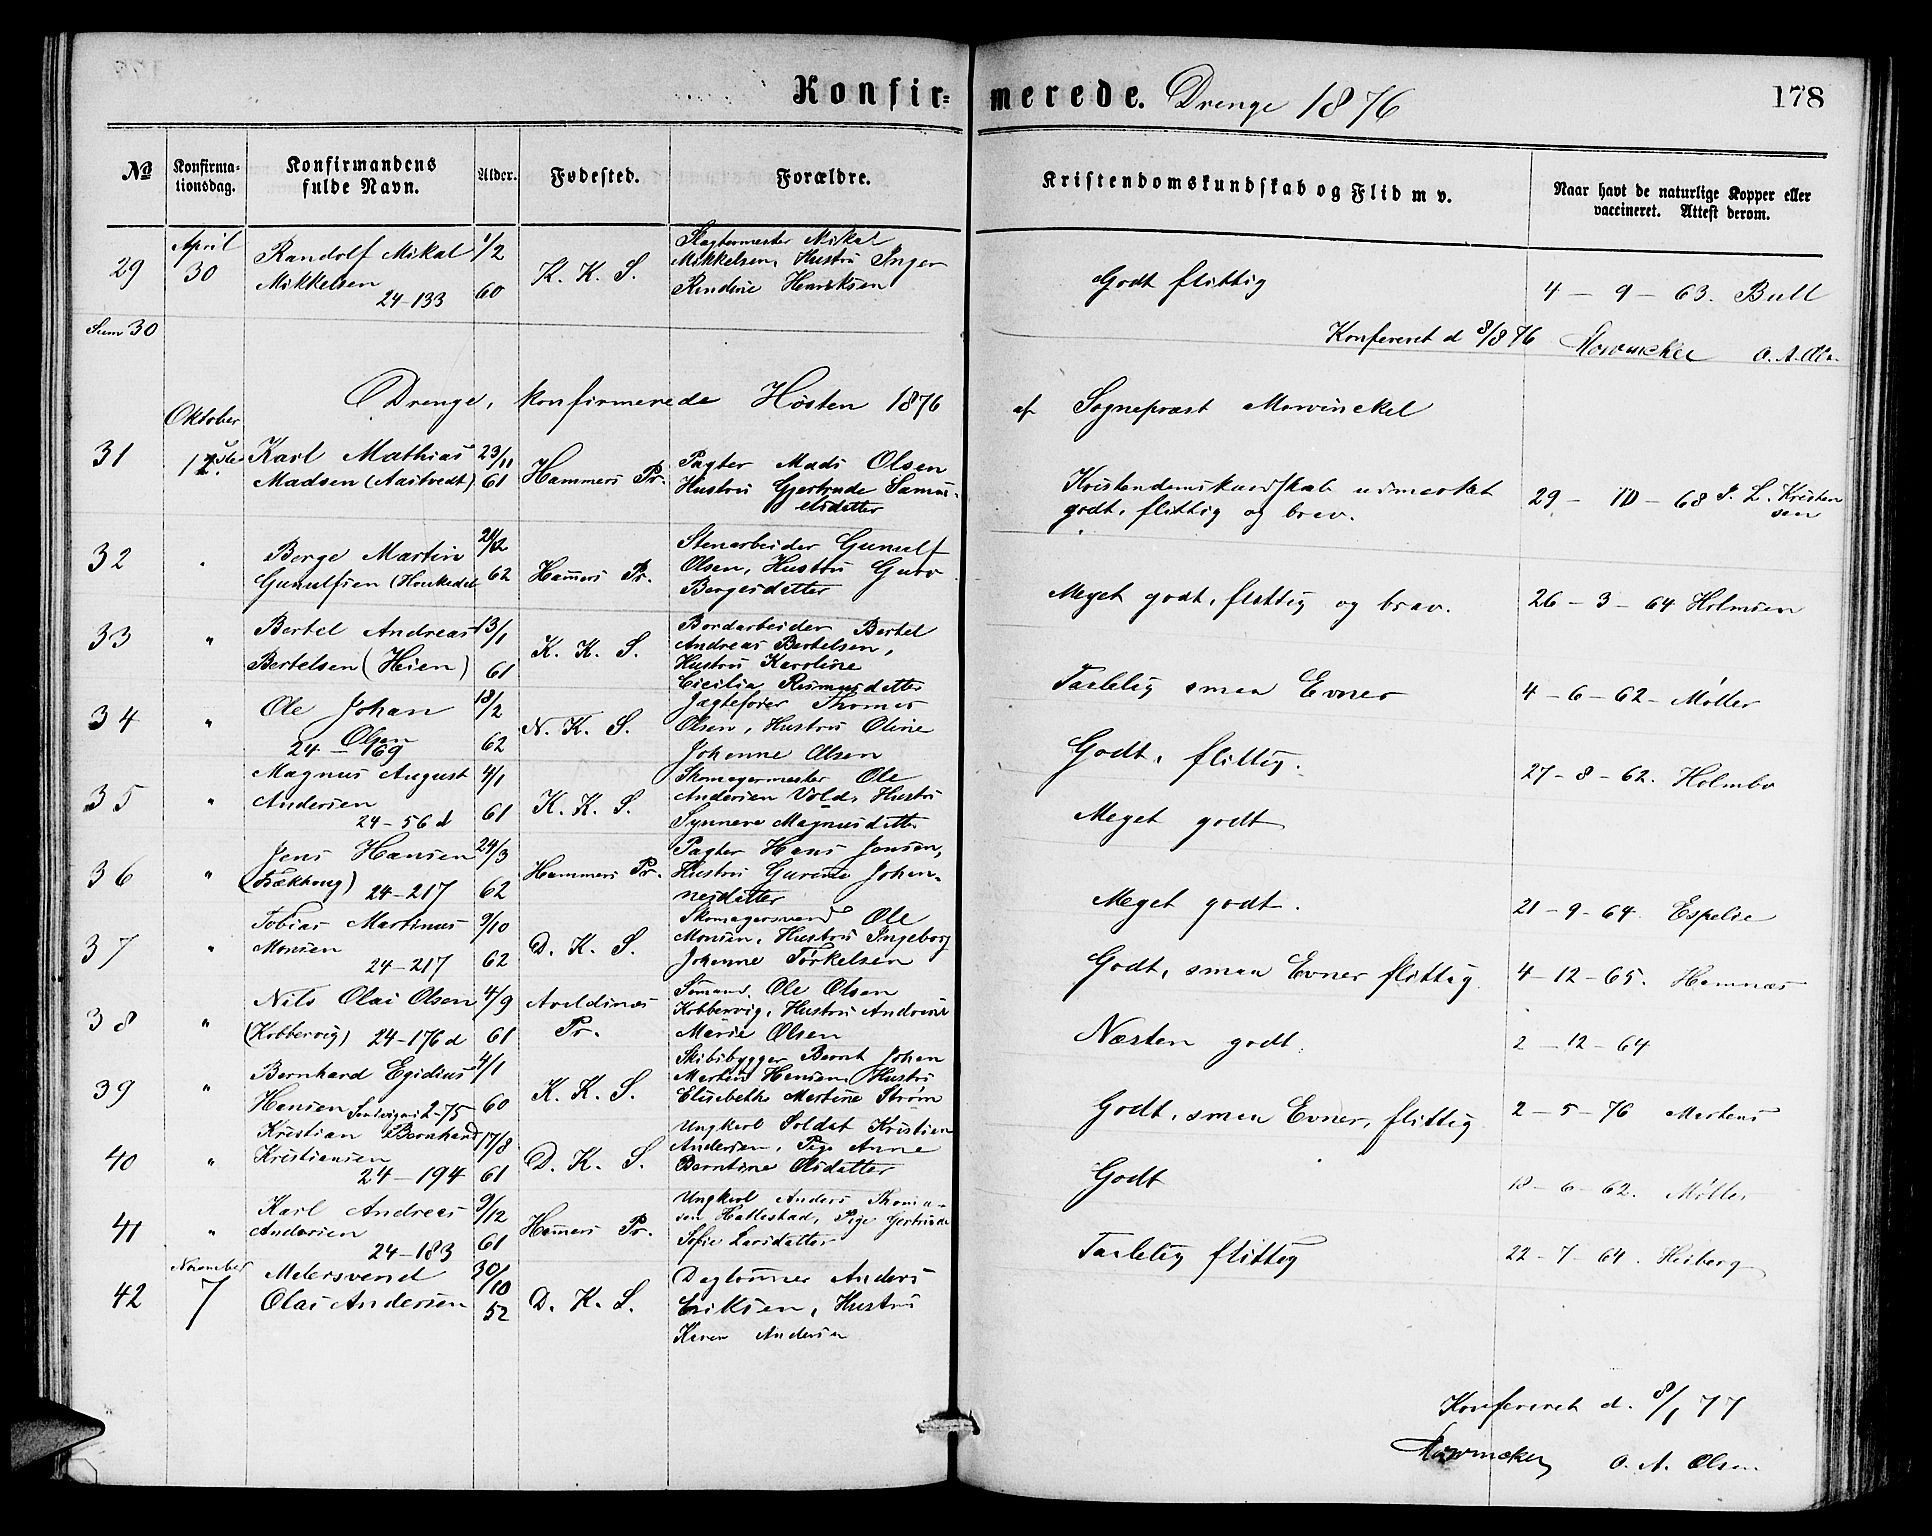 Konfir= merede. Drenge 1876
178
No
Konfirma-
tionsdag.
Konfirmandens
fulde Navn.
Alder.
Fødested.
Forældre.
Kristendomskundskab og Flid m v.
Naar havt de naturlige Kopper eller
vaccineret. Attest derom.
29 April 30
Randolf Mikal 1/2
Mikkelsen 60
24-133
K. K. S.
Slagtermester Mikal
Mikkelsen, Hustru Inger
Henriksen
Godt flittig
4 - 9 - 63. Bull
Sum 30
Konfereret d 8/8 76 Mowinckel O. A. Olsen
Drenge, konfirmerede Høsten 1876 af Sognepræst Mowinckel
Oktober
31
Karl Mathias 23/11
Madsen (Aastvedt) 61
Hammers Pr.
Pagter Mads Olsen
Hustru Gjertrude Samu-
elsdatter
Kristendomskundskab udmærket
godt, flittig og brav.
29 - 10 - 68 P. L. Kristen
sen
32 "
Berge Martin
Gunulfsen 62
Hamers Pr.
Stenarbeider Gunulf
Olsen, Hustru Guro
Bergesdatter
Meget godt, flittig og brav.
26 - 3 - 64 Holmsen
33 "
Bertel Andreas 13/1
Bertelsen (Heien) 61
K. K. S.
Bordarbeider Bertel
Andreas Bertelsen,
Hustru Karoline
Cicilia Rasmusdatter
Taalelig smaa Evner
4 - 6 - 62 - Møller
34 "
Ole Johan 18/2
Olsen 62
24 - 169
N. K. S.
Jægtefører Thomas
Olsen, Hustru Oline
Johanne Olsen
Godt, flittig.
27 - 8 - 62. Holmbo
35 "
Magnus August 4/1
Andersen 61
24 - 56 d
K. K. S.
Skomagermester Ole
Andersen Vold, Hustru
Synneve Magnusdatter
Meget godt
36 "
Jens Hansen 24/3
24-217 62
Hammers Pr.
Pagter Hans Jensen,
Hustru Gurine Johan-
nesdatter
Meget godt.
21 - 9 - 64. Espelie
37 "
Tobias Martinus 9/10
Monsen 62
24-217
D. K. S.
Skomagersvend Ole
Monsen, Hustru Ingeborg
Johanne Torkelsen
Godt, smaa Evner flittig
4 - 12 - 65. Hamnæs
38 "
Nils Olai Olsen 4/9
(Kobbervig) 24-176 d 61
Pr.
Sømand Ole Olsen
Kobbervig, Hustru Andrine
Marie Olsen
Næsten godt.
2 - 12 - 64
39 "
Bernhard Egidius 4/1
Hansen 2-75 60
K. K. S.
Skibsbygger Bernt Johan
Martin Hansen, Hustru
Elisabeth Martine Strøm
Godt, smaa Evner, flittig
2 - 5 - 76 Martens
40 "
Kristian Bernhard 17/8
Kristiansen 61
24 - 194
D. K. S.
Ungkarl Soldat Kristian
Andersen, Pige Anne
Berntine Olsdatter
Godt
18 - 6 - 62. Møller
41 "
Karl Andreas 9/12
Andersen 61
24-183
Hamers Pr.
Ungkarl Anders Thoma-
sen Hallestad, Pige Gertrude
Sofie Larsdatter
Taalelig flittig
22 - 7 - 64. Heiberg
42 November 7
Malersvend 30/10
Olai Andersen 52
D. K. S.
Daglønner Anders
Eriksen, Hustru
Karen Andersen
Konfereret d. 8/1 77
Mowinckel O. A. Olsen